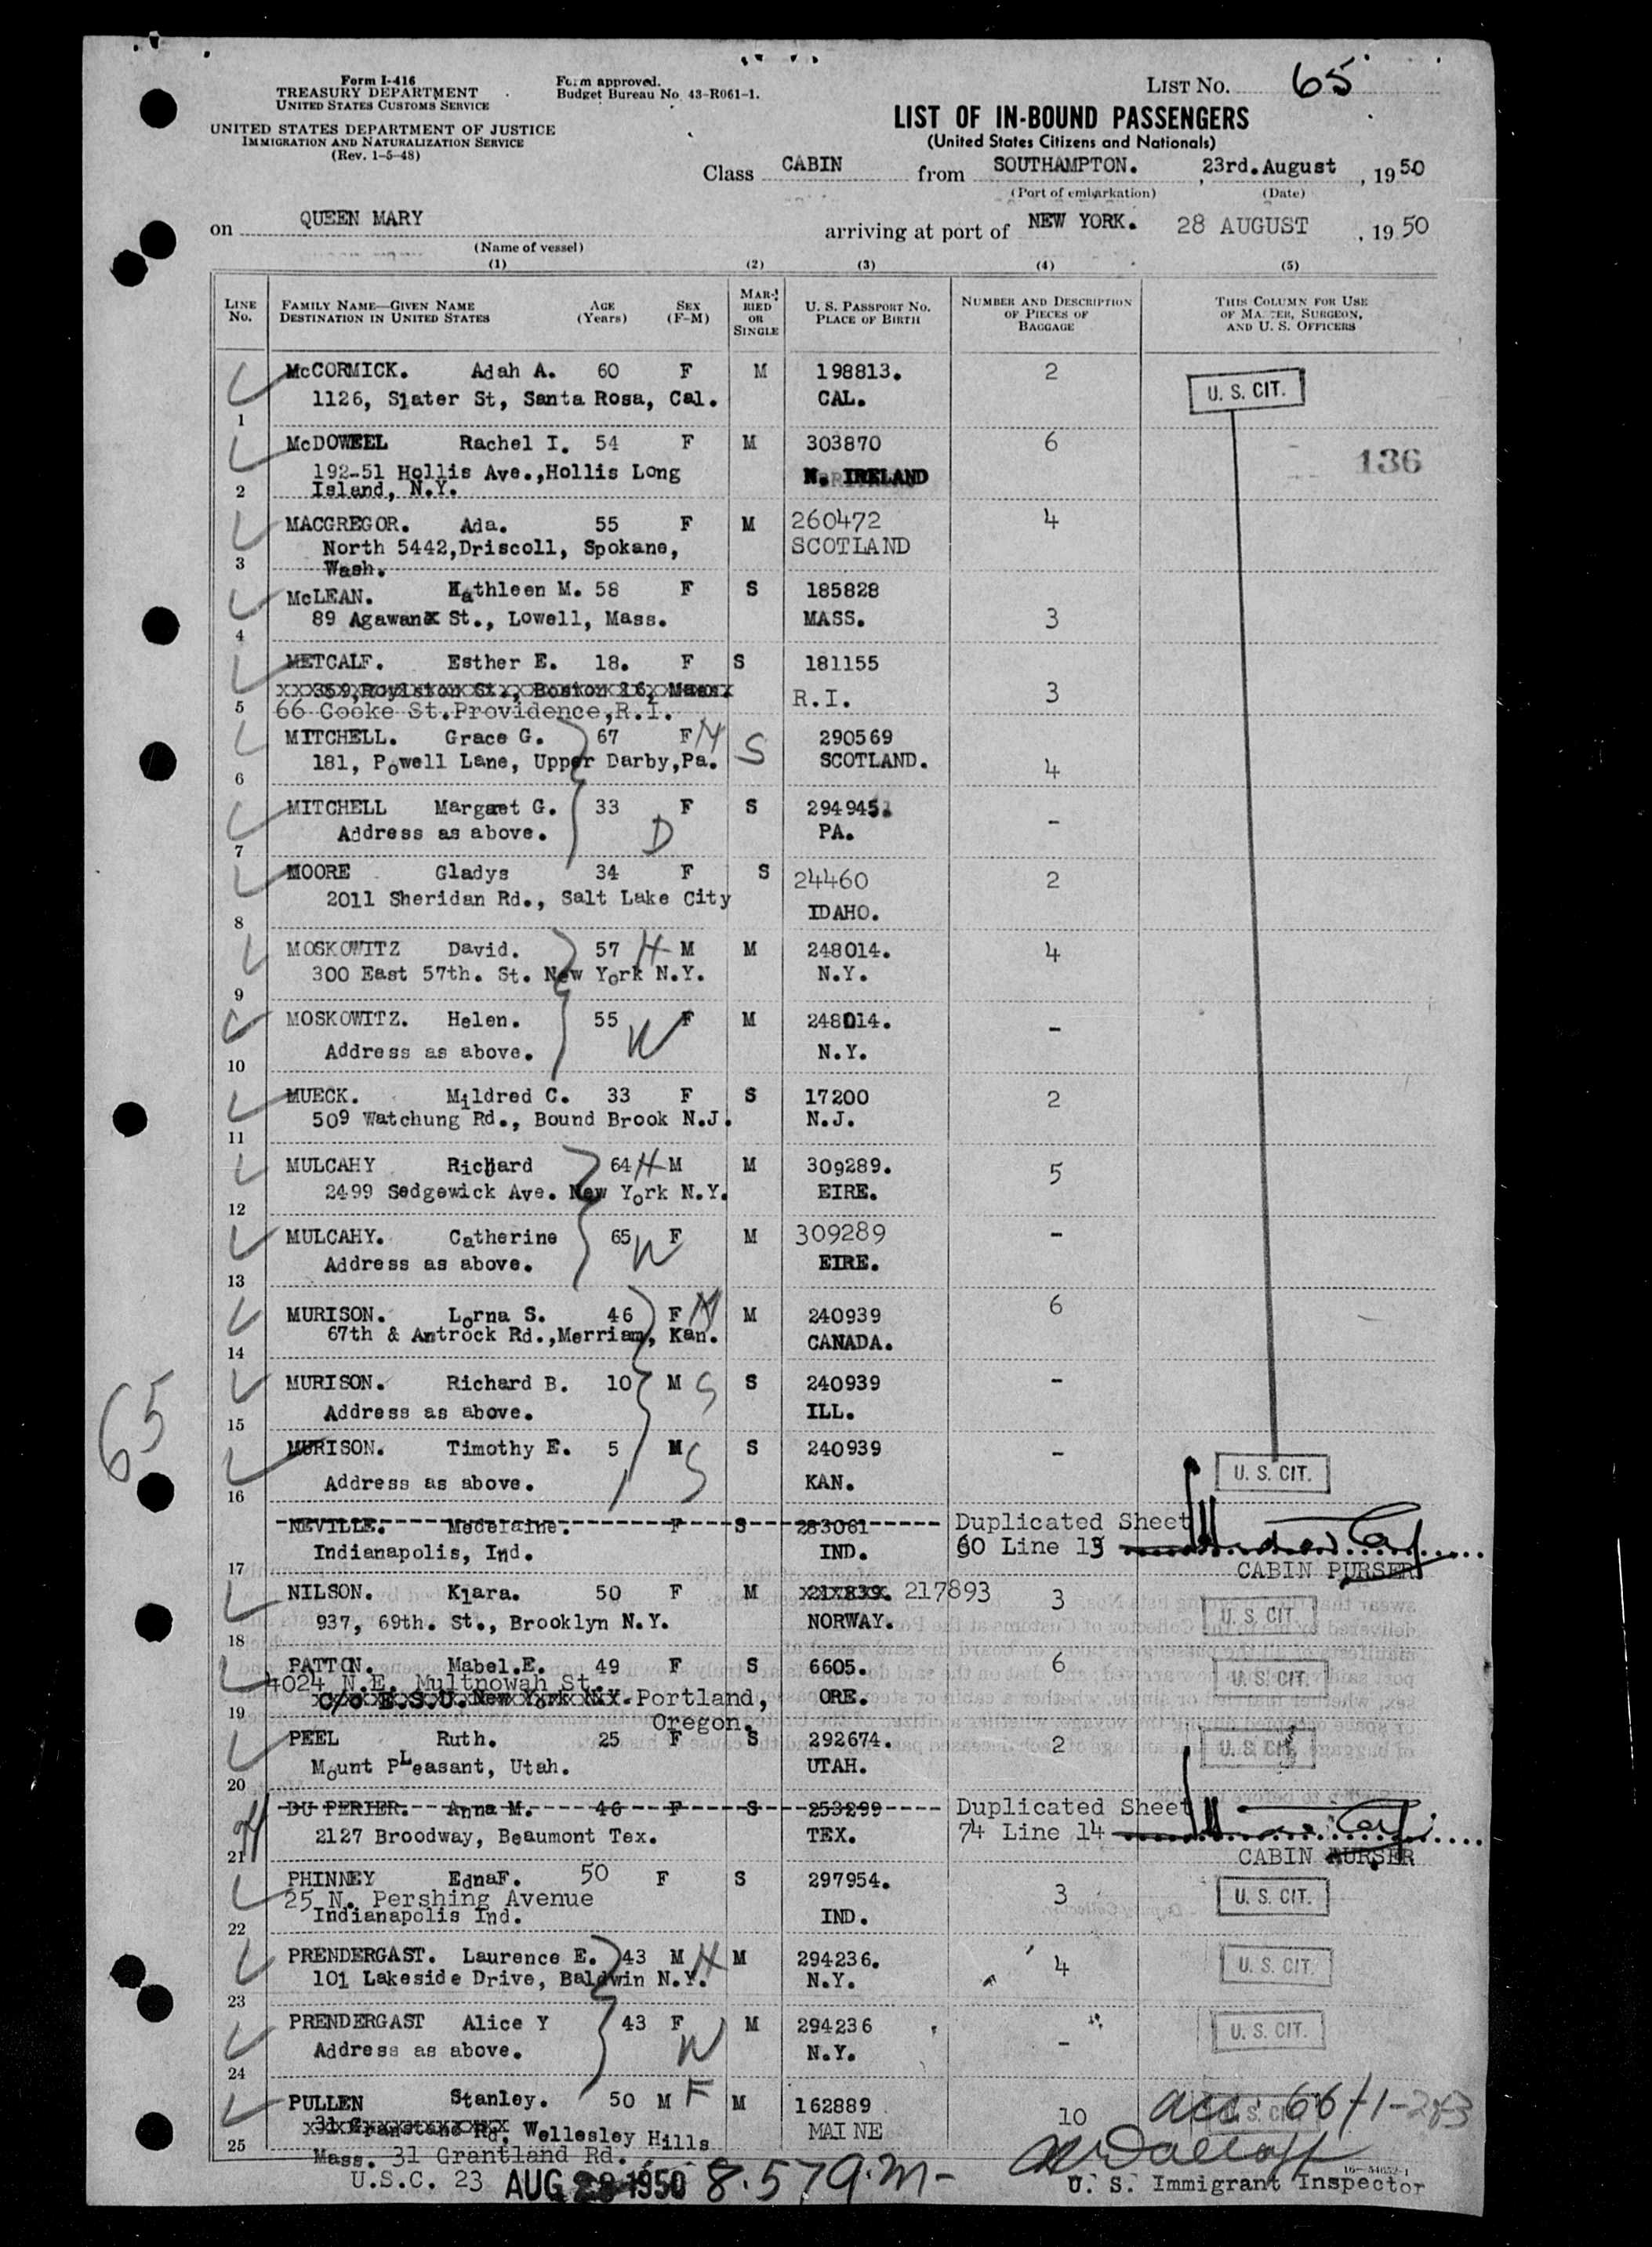 Form I-416
TREASURY DEPARTMENT
UNITED STATES CUSTOMS SERVICE
UNITED STATES DEPARTMENT OF JUSTICE
IMMIGRATION AND NATURALIZATION SERVICE
(Rev. 1-5-48)
Form approved.
Budget Bureau No. 43-R061-1.
LIST NO. 65
LIST OF IN-BOUND PASSENGERS
(United States Citizens and Nationals)
Class CABIN from SOUTHAMPTON. , 23rd.August , 1950
(Port of embarkation) (Date)
on QUEEN MARY arriving at port of NEW YORK. 28 AUGUST , 19 50
(Name of vessel)
(1) (2) (3) (4) (5)
LINE NO. FAMILY NAME—GIVEN NAME DESTINATION IN UNITED STATES AGE (Years) SEX (F-M) MARRIED OR SINGLE U. S. PASSPORT NO. PLACE OF BIRTH NUMBER AND DESCRIPTION OF PIECES OF BAGGAGE THIS COLUMN FOR USE OF MASTER, SURGEON, AND U. S. OFFICERS
McCORMICK. Adah A. 60 F M 198813. 2 U. S. CIT.
1126, Slater St, Santa Rosa, Cal. CAL.
1
McDOWELL Rachel I. 54 F M 303870 6
136
192-51 Hollis Ave.,Hollis Long N. IRELAND
2 Island, N.Y.
MACGREGOR. Ada. 55 F M 260472 4
North 5442,Driscoll, Spokane, SCOTLAND
3 Wash.
McLEAN. Kathleen M. 58 F S 185828
89 Agawam St., Lowell, Mass. MASS. 3
4
METCALF. Esther E. 18. F S 181155
359,Roylston St., Boston 16, Mass. R.I. 3
5 66 Cooke St.Providence,R.I.
MITCHELL. Grace G. 67 F M S 290569
181, Powell Lane, Upper Darby,Pa. SCOTLAND. 4
6
MITCHELL Margaet G. 33 F S 294945.
Address as above. D PA. -
7
MOORE Gladys 34 F S 24460 2
2011 Sheridan Rd., Salt Lake City IDAHO.
8
MOSKOWITZ David. 57 H M M 248014. 4
300 East 57th. St. New York N.Y. N.Y.
9
MOSKOWITZ. Helen. 55 W F M 248014. -
Address as above. N.Y.
10
MUECK. Mildred C. 33 F S 17200 2
509 Watchung Rd., Bound Brook N.J. N.J.
11
MULCAHY Richard 64 H M M 309289. 5
2499 Sedgewick Ave. New York N.Y. EIRE.
12
MULCAHY. Catherine 65 W F M 309289 -
Address as above. EIRE.
13
MURISON. Lorna S. 46 F M M 240939 6
67th & Antrock Rd.,Merriam, Kan. CANADA.
14
MURISON. Richard B. 10 M S S 240939 -
Address as above. ILL.
15
65
MURISON. Timothy E. 5 M S S 240939 -
Address as above. KAN. U. S. CIT.
16
NEVILLE. Medelaine. F S 283061 Duplicated Sheet
Indianapolis, Ind. IND. 60 Line 15
17 CABIN PURSER
NILSON. Klara. 50 F M 21839. 217893 3
937, 69th. St., Brooklyn N.Y. NORWAY. U. S. CIT.
18
PATTON. Mabel.E. 49 F S 6605. 6 U. S. CIT.
4024 N.E. Multnowah St.
C/o E.S.U. New York N.Y. Portland, ORE.
19 Oregon.
PEEL Ruth. 25 F S 292674. 2 U. S. CIT.
Mount PLeasant, Utah. UTAH.
20
DU PERIER. Anna M. 46 F S 253299 Duplicated Sheet
2127 Broodway, Beaumont Tex. TEX. 74 Line 14
21 CABIN PURSER
PHINNEY EdnaF. 50 F S 297954. 3 U. S. CIT.
25 N. Pershing Avenue
Indianapolis Ind. IND.
22
PRENDERGAST. Laurence E. 43 M H M 294236. 4 U. S. CIT.
101 Lakeside Drive, Baldwin N.Y. N.Y.
23
PRENDERGAST Alice Y 43 F W M 294236 - U. S. CIT.
Address as above. N.Y.
24
PULLEN Stanley. 50 M F M 162889 10 U. S. CIT.
Wellesley Hills MAINE
25 Mass. 31 Grantland Rd.
U.S.C. 23 AUG 28 1950 8.57 A.M- U. S. Immigrant Inspector